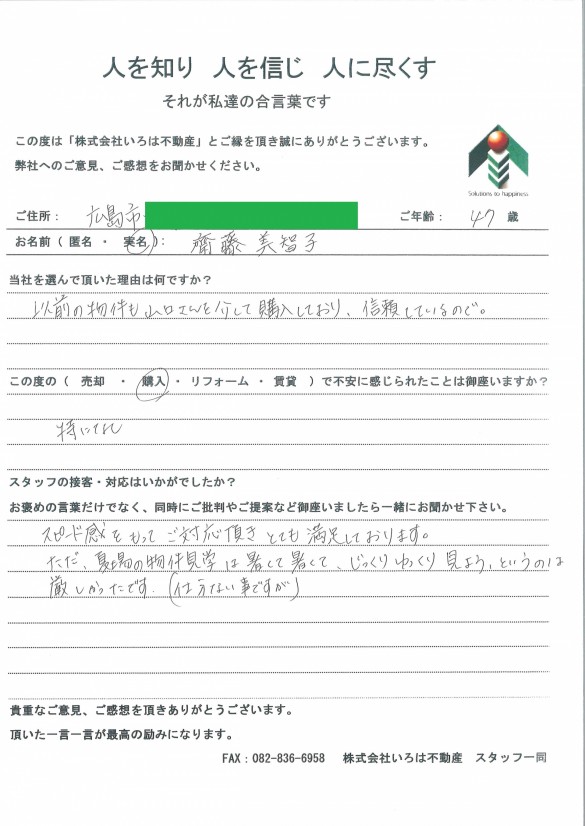 人を知り 人を信じ 人に尽くす
それが私達の合言葉です
この度は「株式会社いろは不動産」とご縁を頂き誠にありがとうございます。
弊社へのご意見、ご感想をお聞かせください。
Solutions to happiness
ご住所： 広島市 ご年齢： 47 歳
お名前（ 匿名 ・ 実名 ）： 齋藤 美智子
当社を選んで頂いた理由は何ですか？
以前の物件も山口さんを介して購入しており、信頼しているので。
この度の（ 売却 ・ 購入 ・ リフォーム ・ 賃貸 ）で不安に感じられたことは御座いますか？
特になし
スタッフの接客・対応はいかがでしたか？
お褒めの言葉だけでなく、同時にご批判やご提案など御座いましたら一緒にお聞かせ下さい。
スピード感をもってご対応頂きとても満足しております。
ただ、夏場の物件見学は暑くて暑くて、じっくりゆっくり見よう、というのは
厳しかったです.（仕方ない事ですが）
貴重なご意見、ご感想を頂きありがとうございます。
頂いた一言一言が最高の励みになります。
FAX：082-836-6958 株式会社いろは不動産 スタッフ一同